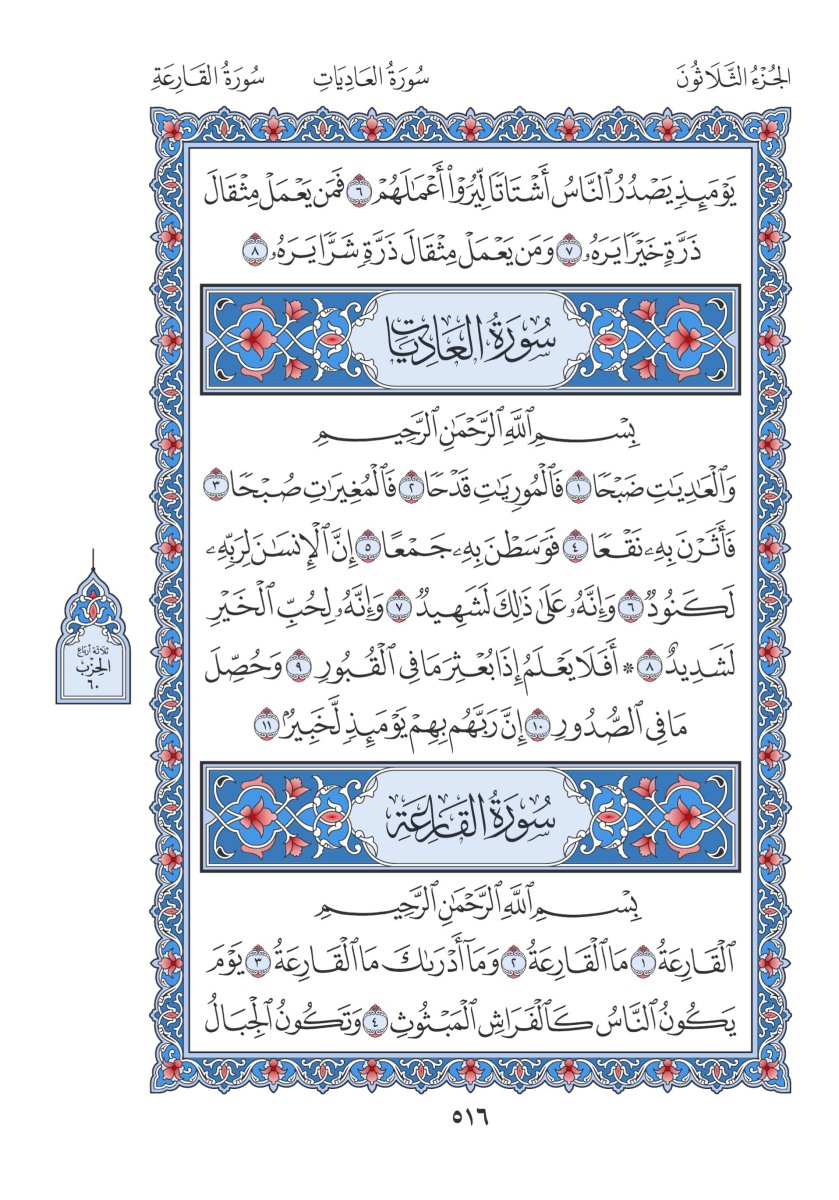 الجُزْءُ الثَّلَاثُونَ سُورَةُ العَادِيَاتِ سُورَةُ القَارِعَةِ
يَوْمَئِذٍ يَصْدُرُ ٱلنَّاسُ أَشْتَاتًا لِّيُرَوْا۟ أَعْمَٰلَهُمْ ٦ فَمَن يَعْمَلْ مِثْقَالَ
ذَرَّةٍ خَيْرًا يَرَهُۥ ٧ وَمَن يَعْمَلْ مِثْقَالَ ذَرَّةٍ شَرًّا يَرَهُۥ ٨
سُورَةُ العَادِيَاتِ
بِسْمِ ٱللَّهِ ٱلرَّحْمَٰنِ ٱلرَّحِيمِ
وَٱلْعَٰدِيَٰتِ ضَبْحًا ١ فَٱلْمُورِيَٰتِ قَدْحًا ٢ فَٱلْمُغِيرَٰتِ صُبْحًا ٣
فَأَثَرْنَ بِهِۦ نَقْعًا ٤ فَوَسَطْنَ بِهِۦ جَمْعًا ٥ إِنَّ ٱلْإِنسَٰنَ لِرَبِّهِۦ
لَكَنُودٌ ٦ وَإِنَّهُۥ عَلَىٰ ذَٰلِكَ لَشَهِيدٌ ٧ وَإِنَّهُۥ لِحُبِّ ٱلْخَيْرِ
لَشَدِيدٌ ٨ * أَفَلَا يَعْلَمُ إِذَا بُعْثِرَ مَا فِى ٱلْقُبُورِ ٩ وَحُصِّلَ
مَا فِى ٱلصُّدُورِ ١٠ إِنَّ رَبَّهُم بِهِمْ يَوْمَئِذٍ لَّخَبِيرٌۢ ١١
ثلاثة أرباع
الحِزْب
٦٠
سُورَةُ القَارِعَةِ
بِسْمِ ٱللَّهِ ٱلرَّحْمَٰنِ ٱلرَّحِيمِ
ٱلْقَارِعَةُ ١ مَا ٱلْقَارِعَةُ ٢ وَمَآ أَدْرَىٰكَ مَا ٱلْقَارِعَةُ ٣ يَوْمَ
يَكُونُ ٱلنَّاسُ كَٱلْفَرَاشِ ٱلْمَبْثُوثِ ٤ وَتَكُونُ ٱلْجِبَالُ
٥١٦